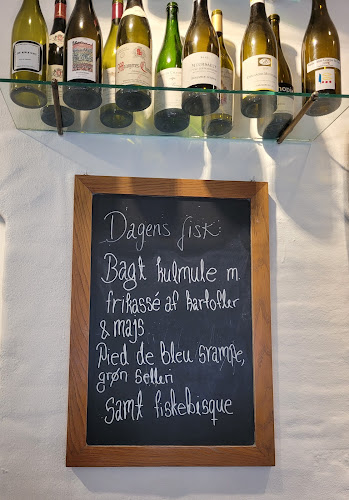 Dagens fisk:
Bagt kulmule m.
frikassé af kartofler
& majs
Pied de bleu svampe,
grøn selleri
samt fiskebisque